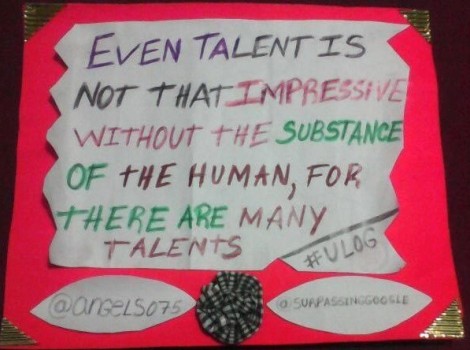 EVEN TALENT IS
NOT THAT IMPRESSIVE
WITHOUT THE SUBSTANCE
OF THE HUMAN, FOR
THERE ARE MANY
TALENTS
#ULOG
@angelso75
@SURPASSINGGOOGLE